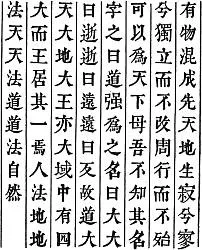 有物混成先天地生寂兮寥
兮獨立而不改周行而不殆
可以爲天下母吾不知其名
字之曰道强爲之名曰大大
曰逝逝曰遠遠曰反故道大
天大地大王亦大域中有四
大而王居其一焉人法地地
法天天法道道法自然